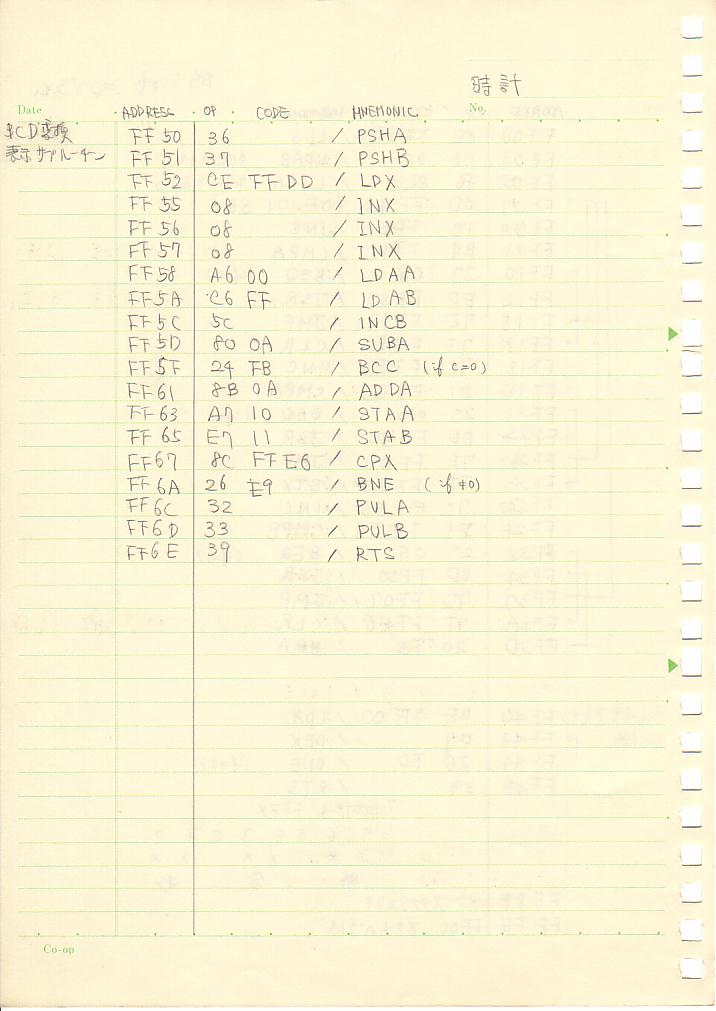 時計
Date
No.
ADDRESS OP CODE MNEMONIC
BCD変換
表示サブルーチン
FF 50 36 / PSHA
FF 51 37 / PSHB
FF 52 CE FF DD / LDX
FF 55 08 / INX
FF 56 08 / INX
FF 57 08 / INX
FF 58 A6 00 / LDAA
FF 5A C6 FF / LDAB
FF 5C 5C / INCB
FF 5D 80 0A / SUBA
FF 5F 24 FB / BCC (if C=0)
FF 61 8B 0A / ADDA
FF 63 A7 10 / STAA
FF 65 E7 11 / STAB
FF 67 8C FF E6 / CPX
FF 6A 26 E9 / BNE (if ≠0)
FF 6C 32 / PULA
FF 6D 33 / PULB
FF 6E 39 / RTS
Co-op